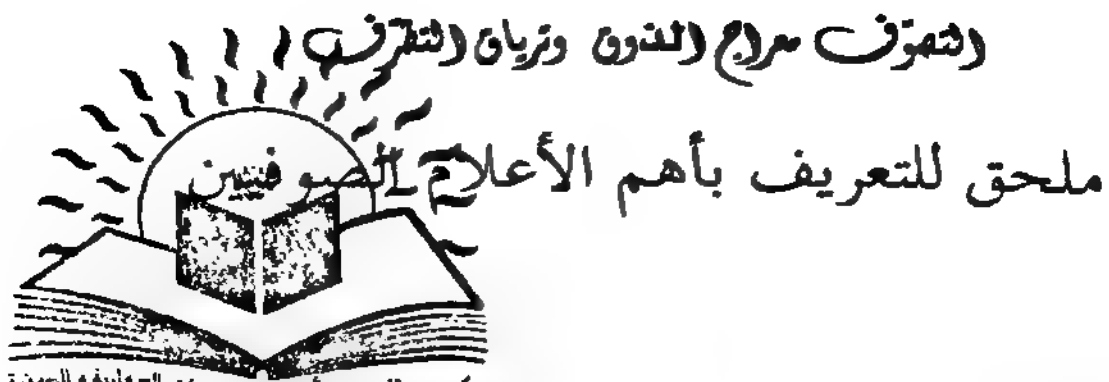 التصوّف معراج الذوق وترياق التطرّف
ملحق للتعريف بأهم الأعلام الصوفيين